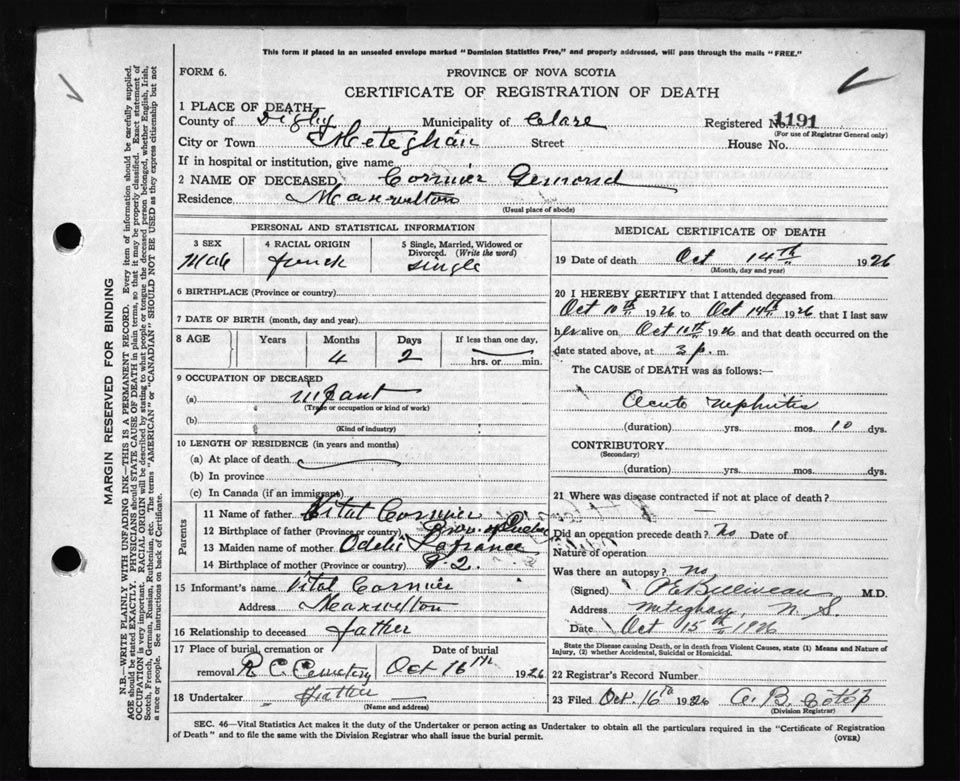 This form if placed in an unsealed envelope marked "Dominion Statistics Free," and properly addressed, will pass through the mails "FREE."
FORM 6.
PROVINCE OF NOVA SCOTIA
CERTIFICATE OF REGISTRATION OF DEATH
1 PLACE OF DEATH
County of Digby Municipality of Clare Registered No. 1191
(For use of Registrar General only)
City or Town Meteghan Street House No.
If in hospital or institution, give name
2 NAME OF DECEASED Cormier Gemond
Residence Maxwelton
(Usual place of abode)
PERSONAL AND STATISTICAL INFORMATION
3 SEX 4 RACIAL ORIGIN 5 Single, Married, Widowed or
Divorced. (Write the word)
Male french single
6 BIRTHPLACE (Province or country)
7 DATE OF BIRTH (month, day and year)
8 AGE Years Months Days If less than one day,
4 2 hrs. or min.
9 OCCUPATION OF DECEASED
(a) infant
(Trade or occupation or kind of work)
(b)
(Kind of industry)
10 LENGTH OF RESIDENCE (in years and months)
(a) At place of death
(b) In province
(c) In Canada (if an immigrant)
Parents
11 Name of father Vital Cormier
12 Birthplace of father (Province or country) Prov. of Quebec
13 Maiden name of mother Odelie Lafrance
14 Birthplace of mother (Province or country) P.Q.
15 Informant's name Vital Cormier
Address Maxwelton
16 Relationship to deceased father
17 Place of burial, cremation or Date of burial
removal R. C. Cemetery Oct 16th 1926
18 Undertaker father
(Name and address)
MEDICAL CERTIFICATE OF DEATH
19 Date of death Oct 14th 1926
(Month, day and year)
20 I HEREBY CERTIFY that I attended deceased from
Oct 10th 1926 to Oct 14th 1926 that I last saw
h alive on Oct 11th 1926 and that death occurred on the
date stated above, at 3 p. m.
The CAUSE of DEATH was as follows:
Acute nephritis
(duration) yrs. mos. 10 dys.
CONTRIBUTORY
(Secondary)
(duration) yrs. mos. dys.
21 Where was disease contracted if not at place of death?
Did an operation precede death? No Date of
Nature of operation
Was there an autopsy? No
(Signed) Belliveau M.D.
Address Meteghan, N. S.
Date Oct 15th 1926
State the Disease causing Death, or in death from Violent Causes, state (1) Means of
Injury, (2) whether Accidental, Suicidal or Homicidal.
22 Registrar's Record Number
23 Filed Oct. 16th 1926 B.
(Division Registrar)
SEC. 46—Vital Statistics Act makes it the duty of the Undertaker or person acting as Undertaker to obtain all the particulars required in the "Certificate of Registration
of Death" and to file the same with the Division Registrar who shall issue the burial permit. (OVER)
MARGIN RESERVED FOR BINDING
N.B.—WRITE PLAINLY WITH UNFADING INK—THIS IS A PERMANENT RECORD. Every item of information should be carefully supplied.
AGE should be stated EXACTLY. PHYSICIANS should STATE CAUSE OF DEATH in plain terms, so that it may be properly classified. Exact statement of
OCCUPATION is very important. RACIAL ORIGIN will be described by stating to what people or tongue the deceased person belonged, whether English, Irish,
Scotch, French, German, Russian, Ruthenian, etc. The terms "AMERICAN" or "CANADIAN" SHOULD NOT BE USED as they express citizenship but not
a race or people. See instructions on back of Certificate.